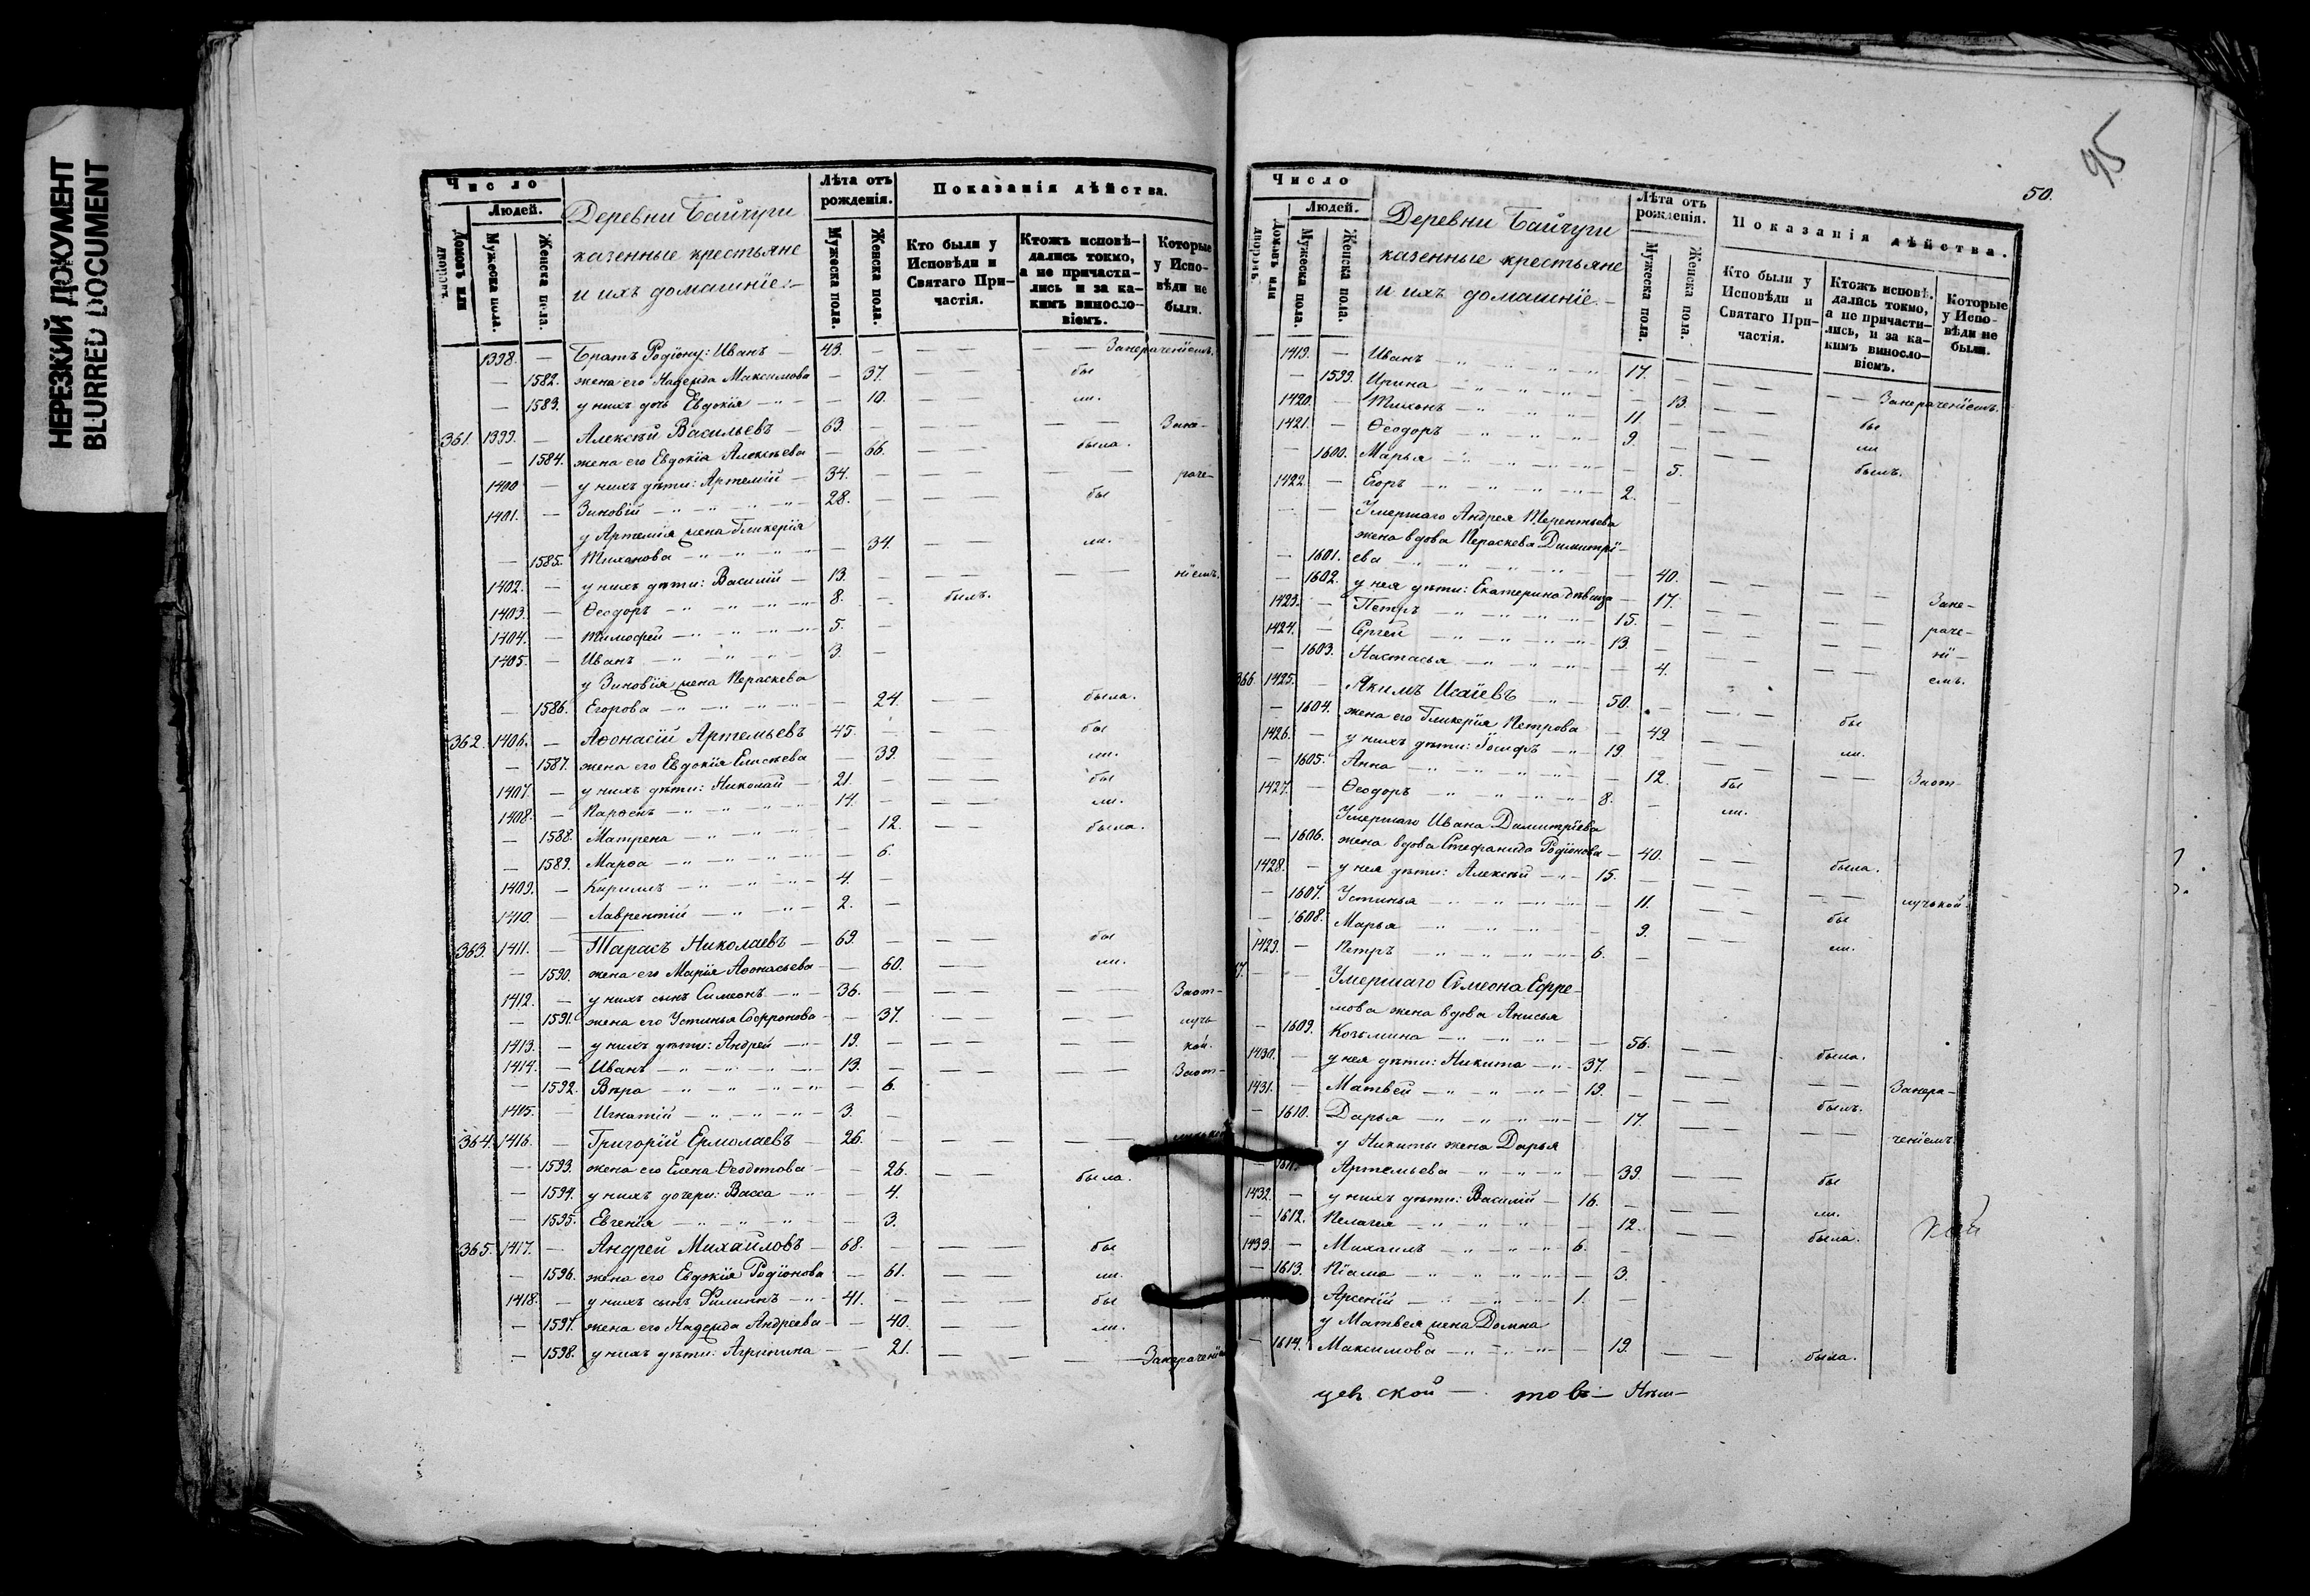 НЕРЕЗКИЙ ДОКУМЕНТ
BLURRED DOCUMENT
Число
Людей.
Домовъ или дворовъ.
Мужеска пола.
Женска пола.
Деревни Байчуги
казенные крестьяне
и ихъ домашнїе:-
Лѣта отъ рожденія.
Мужеска пола.
Женска пола.
Показанія дѣйства.
Кто были у Исповѣди и Святаго Причастія.
Ктожъ исповѣдались токмо, а не причастились и за какимъ винословіемъ.
Которые у Исповѣди не были.
1398. — Братъ Родїону: Иванъ — 43. — — — — — Занерачениемъ.
— 1582. жена его Надежда Максимова — 37. — — бы
— 1583. у нихъ дочь Евдокїя — 10. — — ли.
361. 1399. — Алексѣй Васильевъ — 63. — — — — — Зане-
— 1584. жена его Евдокїя Алексѣева — 66. — — была.
1400 — у нихъ дѣти: Артемїй — 34. — — — — — раче-
1401. — Зиновїй — 28. — — — бы
у Артемїя жена Гликерїя
— 1585. Тиханова — 34. — — ли.
1402. — у нихъ дѣти: Василїй — 13. — — — — — нїемъ.
1403. — Ѳеодоръ — 8. — былъ.
1404. — Тимофей — 5. —
1405. — Иванъ — 3. —
у Зиновїя жена Пераскева
— 1586. Егорова — 24. — — была.
362. 1406. — Аѳонасїй Артемьевъ 45. — — — бы
— 1587. жена его Евдокїя Елисѣева — 39. — — ли.
1407. — у нихъ дѣти: Николай — 21. — — — бы
1408. — Парѳенъ — 14. — — — ли.
— 1588. Матрена — 12. — — была.
— 1589. Марѳа — 6.
1409. — Кирилъ — 4. —
1410. — Лаврентїй — 2. —
363. 1411. — Тарасъ Николаевъ — 69. — — — бы
— 1590. жена его Марїя Аѳонасьева — 60. — — ли.
1412. — у нихъ сынъ Симеонъ — 36. — — — — — Заот-
— 1591. жена его Устинья Софронова — 37. — — — — луч-
1413. — у нихъ дѣти: Андрей — 19. — — — — — кой.
1414. — Иванъ — 13. — — — — — Заот-
— 1592. Вѣра — 6.
1415. — Игнатїй — 3. —
364. 1416. — Григорїй Ермолаевъ — 26. — — — — —
— 1593. жена его Елена Ѳеодотова — 26. — — была.
— 1594. у нихъ дочери: Васса — 4.
— 1595. Евгенїя — 3.
365. 1417. — Андрей Михайловъ — 68. — — — бы
— 1596. жена его Евдокїя Родїонова — 61. — — ли.
1418. — у нихъ сынъ Филиппъ — 41. — — — бы
— 1597. жена его Надежда Андрѣева — 40. — — ли.
— 1598. у нихъ дѣти: Агрипина — 21. — — — Занерачениемъ
95
50.
Число
Людей.
Домовъ или дворовъ
Мужеска пола.
Женска пола.
Деревни Байчуги
казенные крестьяне
и ихъ домашнїе:-
Лѣта отъ рожденія.
Мужеска пола.
Женска пола.
Показанія дѣйства.
Кто были у Исповѣди и Святаго Причастія.
Ктожъ исповѣдались токмо, а не причастились, и за какимъ винословіемъ.
Которые у Исповѣди не были.
1419. — Иванъ — 17. — — — — — Занерачениемъ.
— 1599. Ирина — 13. — — бы
1420. — Тихонъ — 11. — — — ли
1421. — Ѳеодоръ — 9. — — — былъ.
— 1600. Марья — 5.
1422. — Егоръ — 2. —
Умершаго Андрея Терентьева
жена вдова Пераскева Димитрї-
— 1601. ева — 40. — — — — Зане-
— 1602. у нея дѣти: Екатерина дѣвица — 17. — — — — раче-
1423. — Петръ — 15. — — — — — нї-
1424. — Сергей — 13. — — — — — емъ.
— 1603. Настасья — 4.
366. 1425. — Акимъ Исаїевъ — 50. — — — бы
— 1604. жена его Гликерїя Петрова — 49. — — ли.
1426. — у нихъ дѣти: Їосифъ — 19. — — — — — Заот-
— 1605. Анна — 12. бы
1427. — Ѳеодоръ — 8. — ли.
Умершаго Ивана Димитрїева
— 1606. жена вдова Стефанида Родїонова — 40. — — была.
1428. — у нея дѣти: Алексѣй — 15. — — — — — лучькой
— 1607. Устинья — 11. — — бы
— 1608. Марья — 9. — — ли.
1429. — Петръ — 6. —
67. — — Умершаго Сѵмеона Ефре-
мова жена вдова Анисья
— 1609. Козьмина — 56. — — была.
1430. — у нея дѣти: Никита — 37. — — — — — Занера-
1431. — Матвей — 19. — — — былъ.
— 1610. Дарья — 17. — — — — ченїемъ
у Никиты жена Дарья
— 1611. Артемьева — 39. — — бы
1432. — у нихъ дѣти: Василїй — 16. — — — ли.
— 1612. Пелагея — 12. — — была.
1433. — Михаилъ — 6. —
— 1613. Пїама — 3.
Арсенїй — 1. —
у Матвея жена Домна
— 1614. Максимова — 19. — — была.
цев ской — товъ —